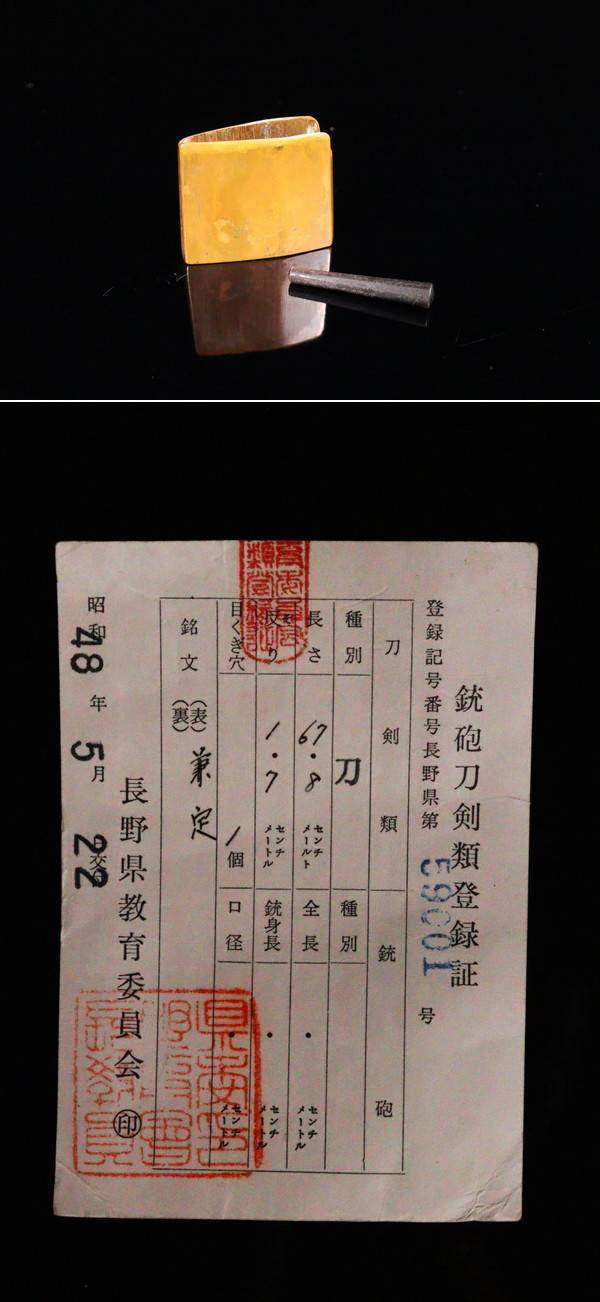 銃砲刀剣類登録証
登録記号番号長野県第 59601 号
刀剣類
銃砲
種別 刀
種別
長さ 67.8 センチメートル
全長 ・ センチメートル
反り 1.7 センチメートル
銃身長 ・ センチメートル
目くぎ穴 1個
口径 ・ センチメートル
銘文 (表) 兼定
(裏)
長野県教育委員会 ㊞
昭和48年5月22